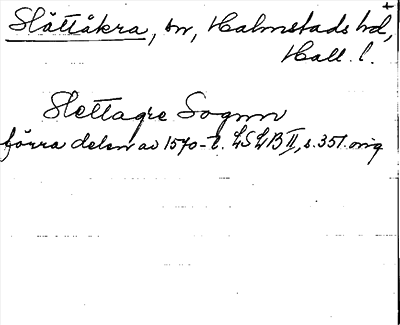 Slättåkra, sn, Halmstads hd,
Hall. l.
Slettagre Sognn
förra delen av 1570-t. LSLB II, s. 351. orig